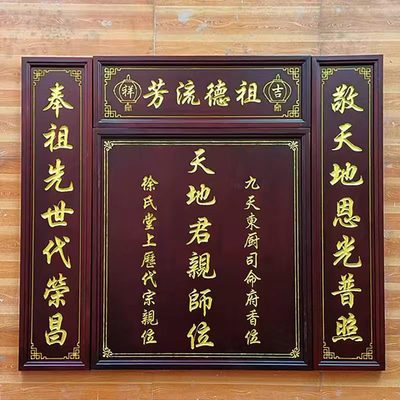 祖德流芳
吉
祥
敬天地恩光普照
九天東厨司命府香位
天地君親師位
徐氏堂上歷代宗親位
奉祖先世代榮昌